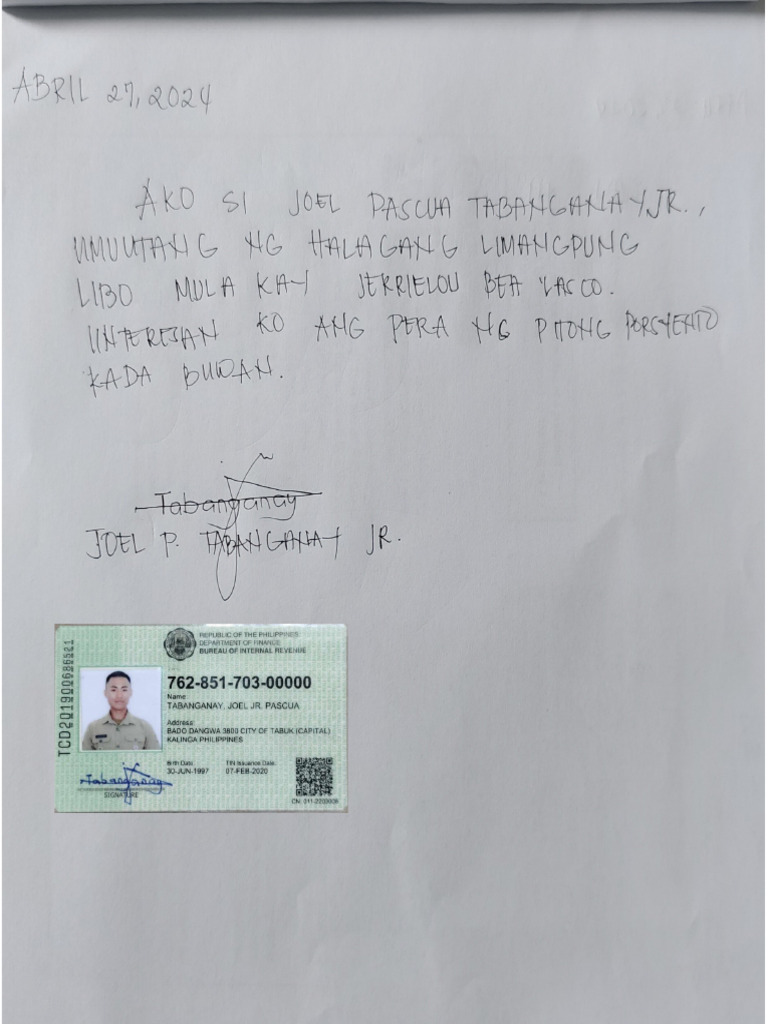 ABRIL 27, 2024
AKO SI JOEL PASCUA TABANGANAY JR.,
UMUUTANG NG HALAGANG LIMANGPUNG
LIBO MULA KAY JERRIELOU BEA YASCO.
IINTERESAN KO ANG PERA NG PITONG PORSYENTO
KADA BUWAN.
Tabanganay
JOEL P. TABANGANAY JR.
REPUBLIC OF THE PHILIPPINES
DEPARTMENT OF FINANCE
BUREAU OF INTERNAL REVENUE
TCD201900686521
762-851-703-00000
Name:
TABANGANAY, JOEL JR. PASCUA
Address:
BADO DANGWA 3800 CITY OF TABUK (CAPITAL)
KALINGA PHILIPPINES
Birth Date TIN Issuance Date
30-JUN-1997 07-FEB-2020
Tabanganay
SIGNATURE